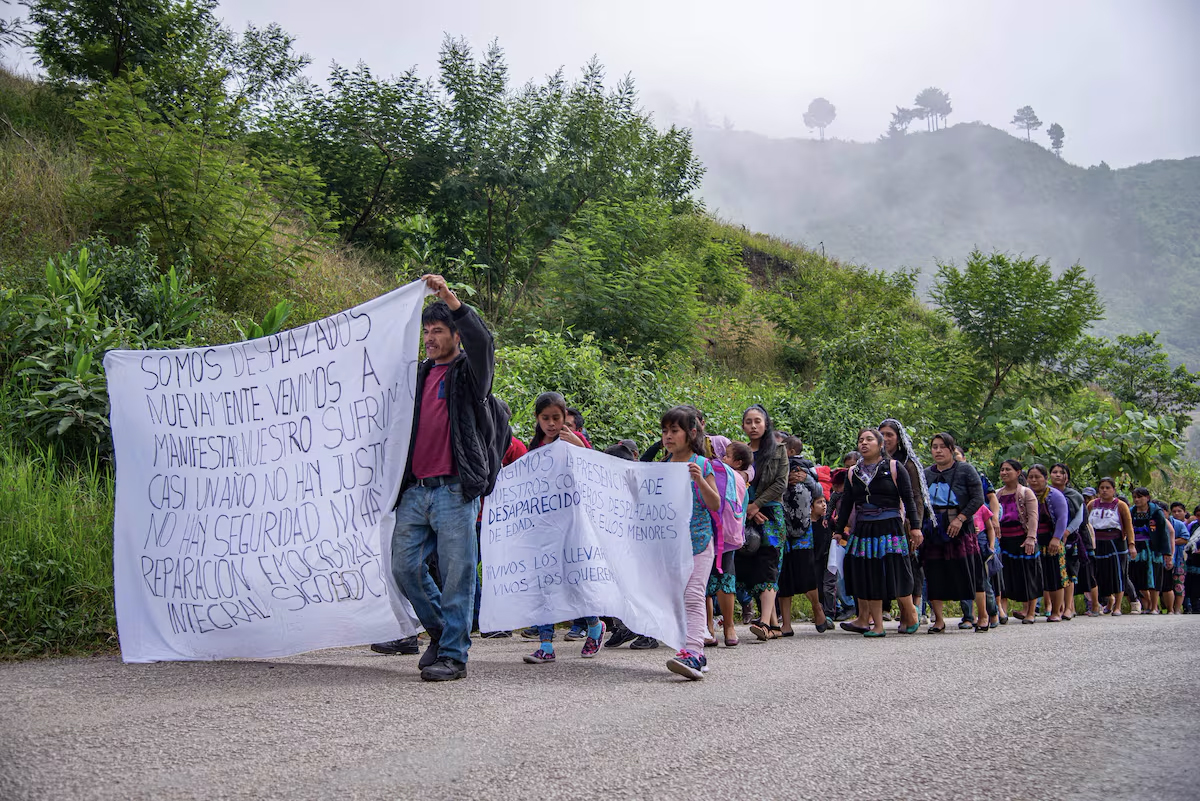 SOMOS DESPLAZADOS
NUEVAMENTE VENIMOS A
MANIFESTAR NUESTRO SUFRIM
CASI UN AÑO NO HAY JUST
NO HAY SEGURIDAD, NI HA
REPARACIÓN EMOCIONAL
INTEGRAL
EXIGIMOS LA PRESENCIA DE
NUESTROS ADE
DESAPARECIDO DESPLAZADOS
DE EDAD. ELLOS MENORES
VIVOS LOS LLEVAR
VIVOS LOS QUEREM